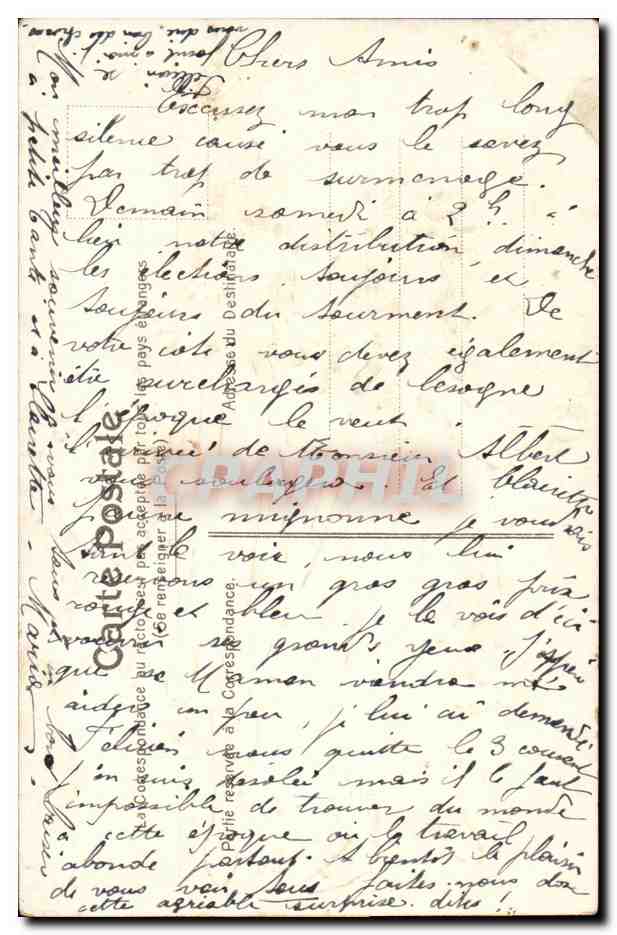 Chers Amis
Excusez mon trop long
silence causé vous le savez
par trop de surmenage.
Demain samedi à 2h. a
lieu notre distribution, dimanche
les élections. toujours et
toujours du tourment. De
votre côté vous devez également
être surchargés de besogne
l'époque le veut.
de Monsieur Albert
vous soulagera. Et Clairette
mignonne je vous
le voir, nous lui
un gros gros prix
rouge et bleu je la vois d'ici
ses grands yeux J'espère
que Maman viendra
aider un peu, je lui ai demandé
Félicien nous quitte le 3 courant
j'en suis désolée mais il le faut
impossible de trouver du monde
à cette époque où le travail
abonde partout. A bientôt le plaisir
de vous voir tous faites-nous donc
cette agréable surprise. dites!
Mon meilleur souvenir à vous tous
à petite tante et à Clairette - Maria
Félicien se
joint à moi
vous dire bien des choses
Carte Postale
La Correspondance au recto n'est pas acceptée par tous les pays étrangers
(Se renseigner à la Poste)
Partie réservée à la Correspondance.
Adresse du Destinataire.
CPAPHIL